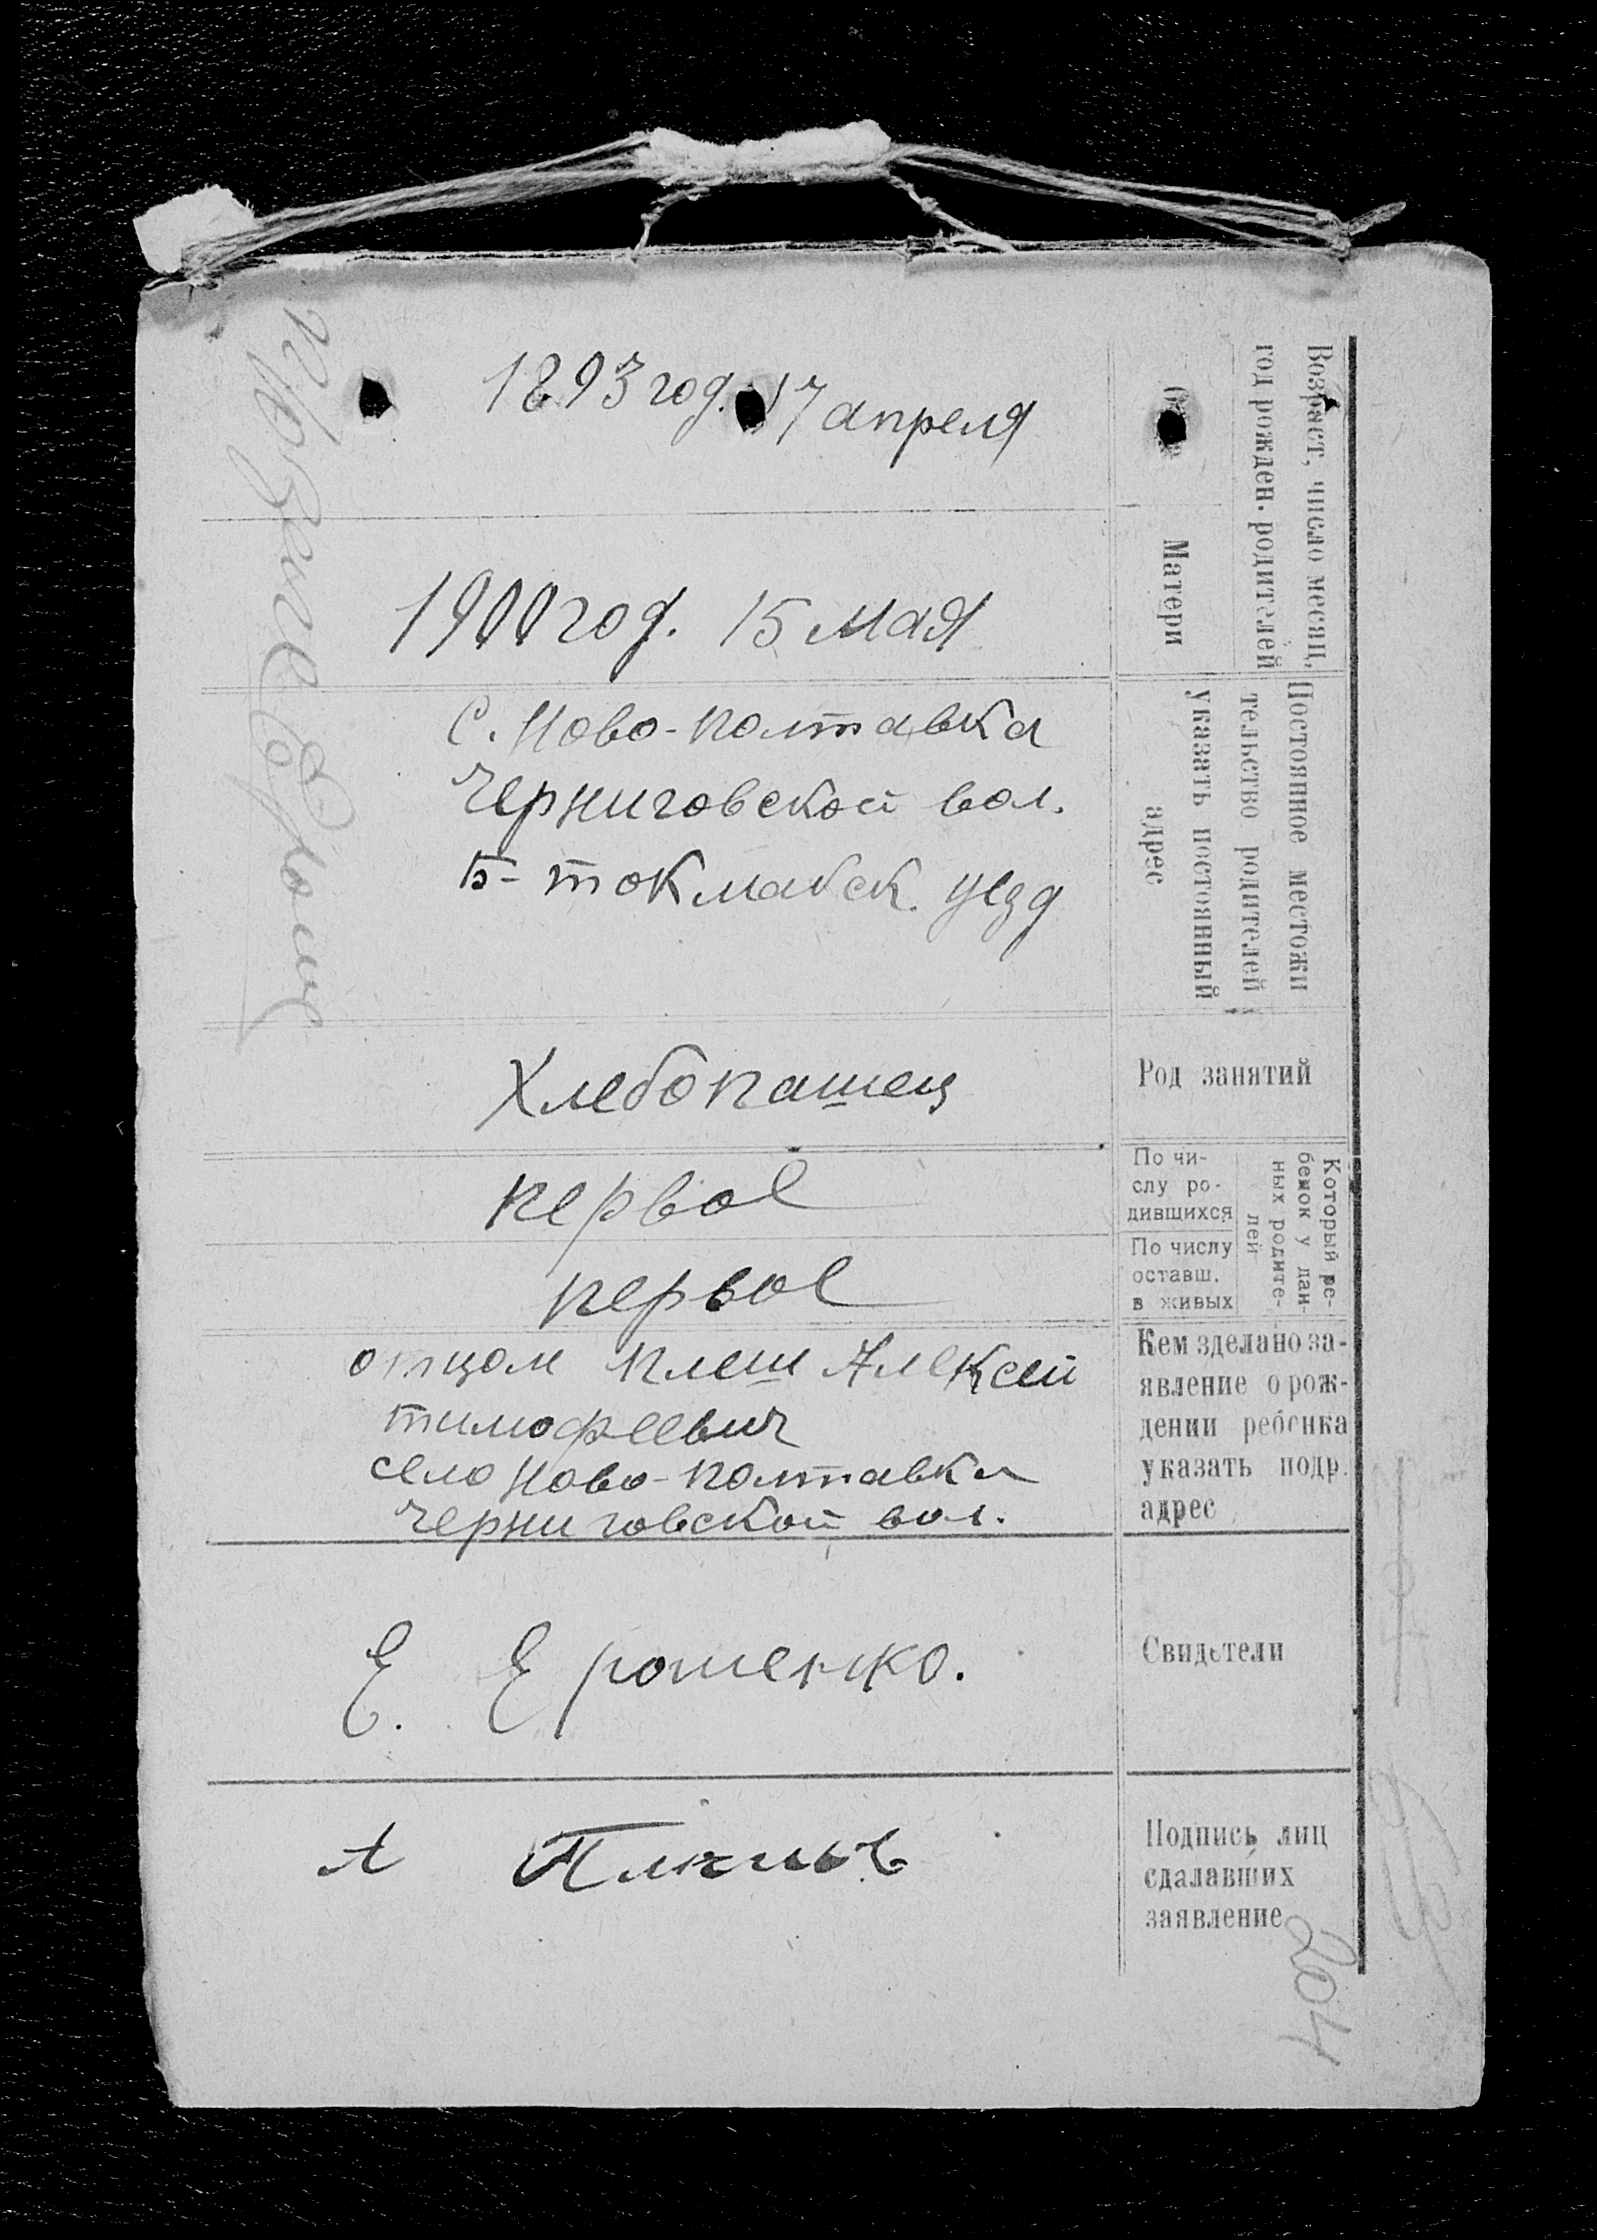 Возраст, число месяц,
год рожден. родителей
1893 год. 17 апреля
Матери
1900 год. 15 мая
Постоянное местожи
тельство родителей
указать постоянный
адрес
С. Ново-полтавка
Черниговской вол.
Б-токмакск. уезд
Род занятий
Хлебопашец
Который ре-
бенок у дан-
ных родите-
лей
По чи-
слу ро-
дившихся
первое
По числу
оставш.
в живых
первое
Кем зделано за-
явление о рож-
дении ребенка
указать подр.
адрес
отцом плеш Алексей
тимофеевич
село Ново-полтавка
Черниговской вол.
Свидетели
Е. Ерошенко.
Подпись лиц
сдалавших
заявление
А
204